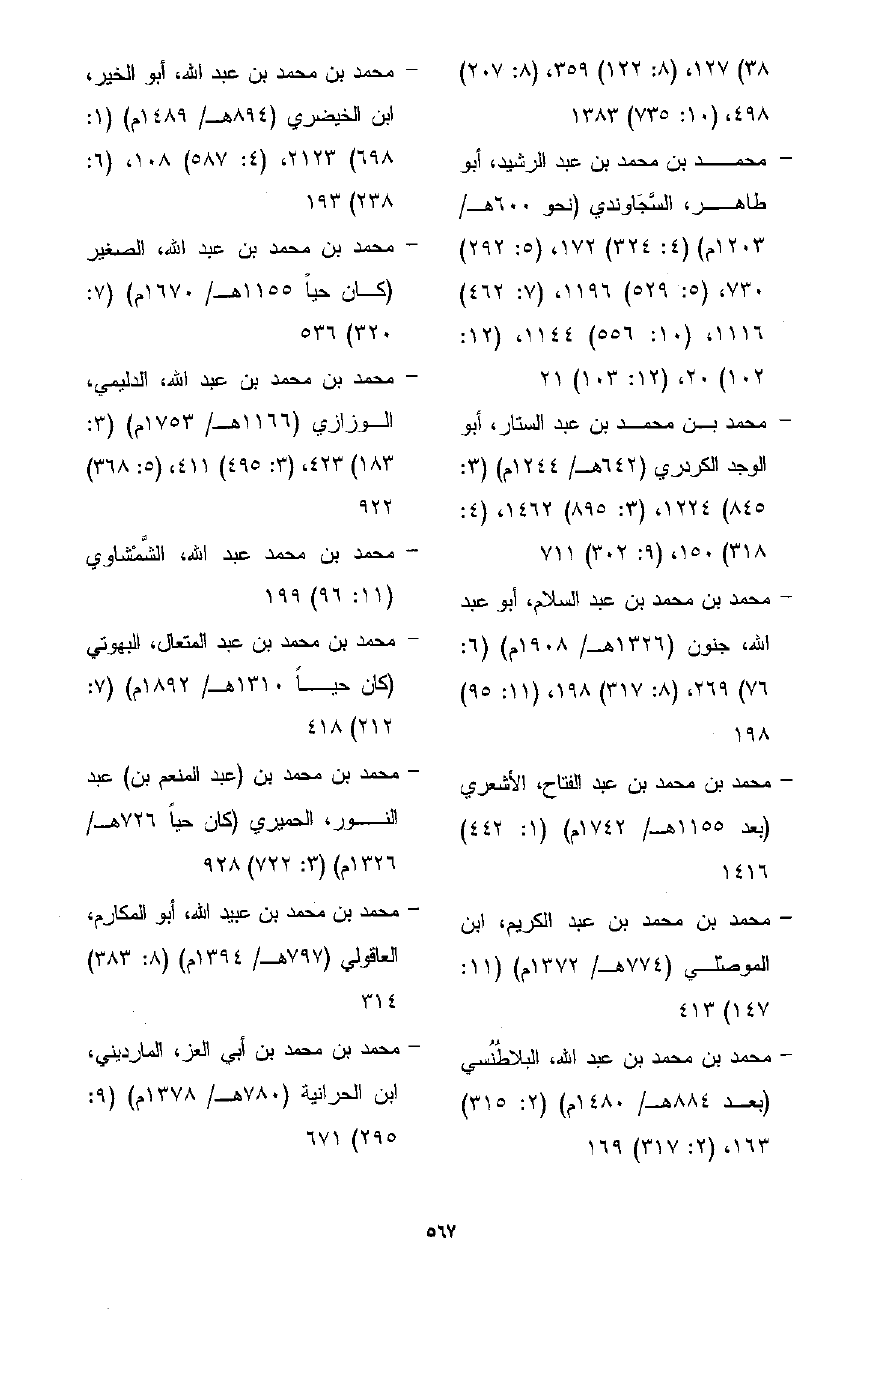 ٣٨) ١٢٧، (٨: ١٢٢) ٣٥٩، (٨: ٢٠٧)
٤٩٨، (١٠: ٧٣٥) ١٣٨٣
- محمد بن محمد بن عبد الرشيد، أبو
طاهر، السَّجَاوندي (نحو ٦٠٠هـ/
١٢٠٣م) (٤: ٣٢٤) ١٧٢، (٥: ٢٩٢)
٧٣٠، (٥: ٥٢٩) ١١٩٦، (٧: ٤٦٢)
١١١٦، (١٠: ٥٥٦) ١١٤٤، (١٢:
١٠٢) ٢٠، (١٢: ١٠٣) ٢١
- محمد بن محمد بن عبد الستار، أبو
الوجد الكردري (٦٤٢هـ/ ١٢٤٤م) (٣:
٨٤٥) ١٢٢٤، (٣: ٨٩٥) ١٤٦٢، (٤:
٣١٨) ١٥٠، (٩: ٣٠٢) ٧١١
- محمد بن محمد بن عبد السلام، أبو عبد
الله، جنون (١٣٢٦هـ/ ١٩٠٨م) (٦:
٧٦) ٢٦٩، (٨: ٣١٧) ١٩٨، (١١: ٩٥)
١٩٨
- محمد بن محمد بن عبد الفتاح، الأشعري
(بعد ١١٥٥هـ/ ١٧٤٢م) (١: ٤٤٢)
١٤١٦
- محمد بن محمد بن عبد الكريم، ابن
الموصلّي (٧٧٤هـ/ ١٣٧٢م) (١١:
١٤٧) ٤١٣
- محمد بن محمد بن عبد الله، البلاطُنُسي
(بعد ٨٨٤هـ/ ١٤٨٠م) (٢: ٣١٥)
١٦٣، (٢: ٣١٧) ١٦٩
- محمد بن محمد بن عبد الله، أبو الخير،
ابن الخيضري (٨٩٤هـ/ ١٤٨٩م) (١:
٦٩٨) ٢١٢٣، (٤: ٥٨٧) ١٠٨، (٦:
٢٣٨) ١٩٣
- محمد بن محمد بن عبد الله، الصغير
(كان حياً ١١٥٥هـ/ ١٦٧٠م) (٧:
٣٢٠) ٥٣٦
- محمد بن محمد بن عبد الله، الدليمي،
الوزازي (١١٦٦هـ/ ١٧٥٣م) (٣:
١٨٣) ٤٢٣، (٣: ٤٩٥) ٤١١، (٥: ٣٦٨)
٩٢٢
- محمد بن محمد عبد الله، الشَّمْشاوي
(١١: ٩٦) ١٩٩
- محمد بن محمد بن عبد المتعال، البهوتي
(كان حياً ١٣١٠هـ/ ١٨٩٢م) (٧:
٢١٢) ٤١٨
- محمد بن محمد بن (عبد المنعم بن) عبد
النور، الحميري (كان حياً ٧٢٦هـ/
١٣٢٦م) (٣: ٧٢٢) ٩٢٨
- محمد بن محمد بن عبيد الله، أبو المكارم،
العاقولي (٧٩٧هـ/ ١٣٩٤م) (٨: ٣٨٣)
٣١٤
- محمد بن محمد بن أبي العز، المارديني،
ابن الحرانية (٧٨٠هـ/ ١٣٧٨م) (٩:
٢٩٥) ٦٧١
٥٦٧